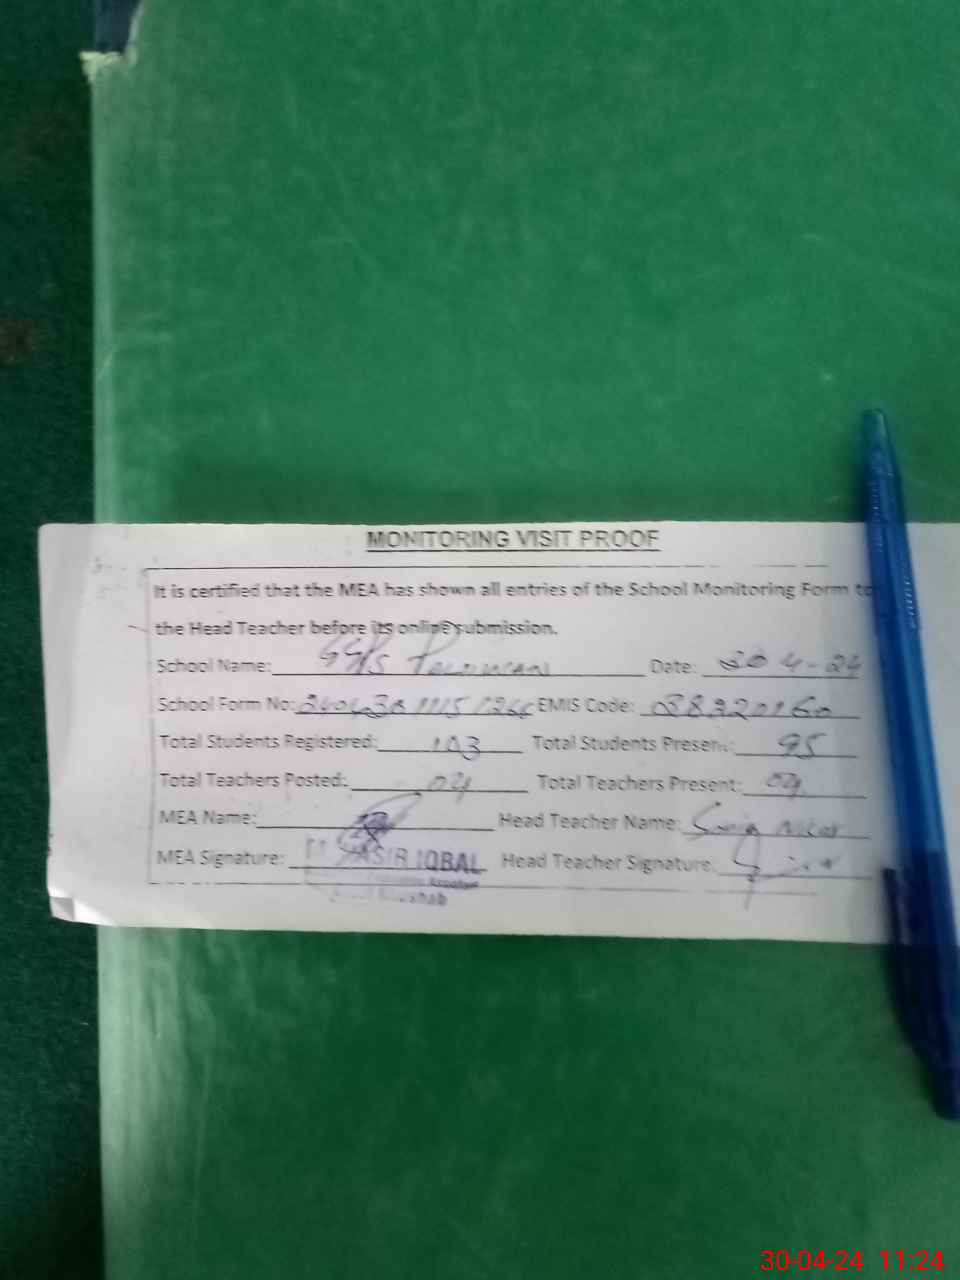 MONITORING VISIT PROOF
It is certified that the MEA has shown all entries of the School Monitoring Form to
the Head Teacher before its online submission.
School Name: Date: 30 4-24
School Form No: EMIS Code: 38320160
Total Students Registered: 103 Total Students Present: 95
Total Teachers Posted: 04 Total Teachers Present: 04
MEA Name: Head Teacher Name:
MEA Signature: YASIR IQBAL Head Teacher Signature:
30-04-24 11:24